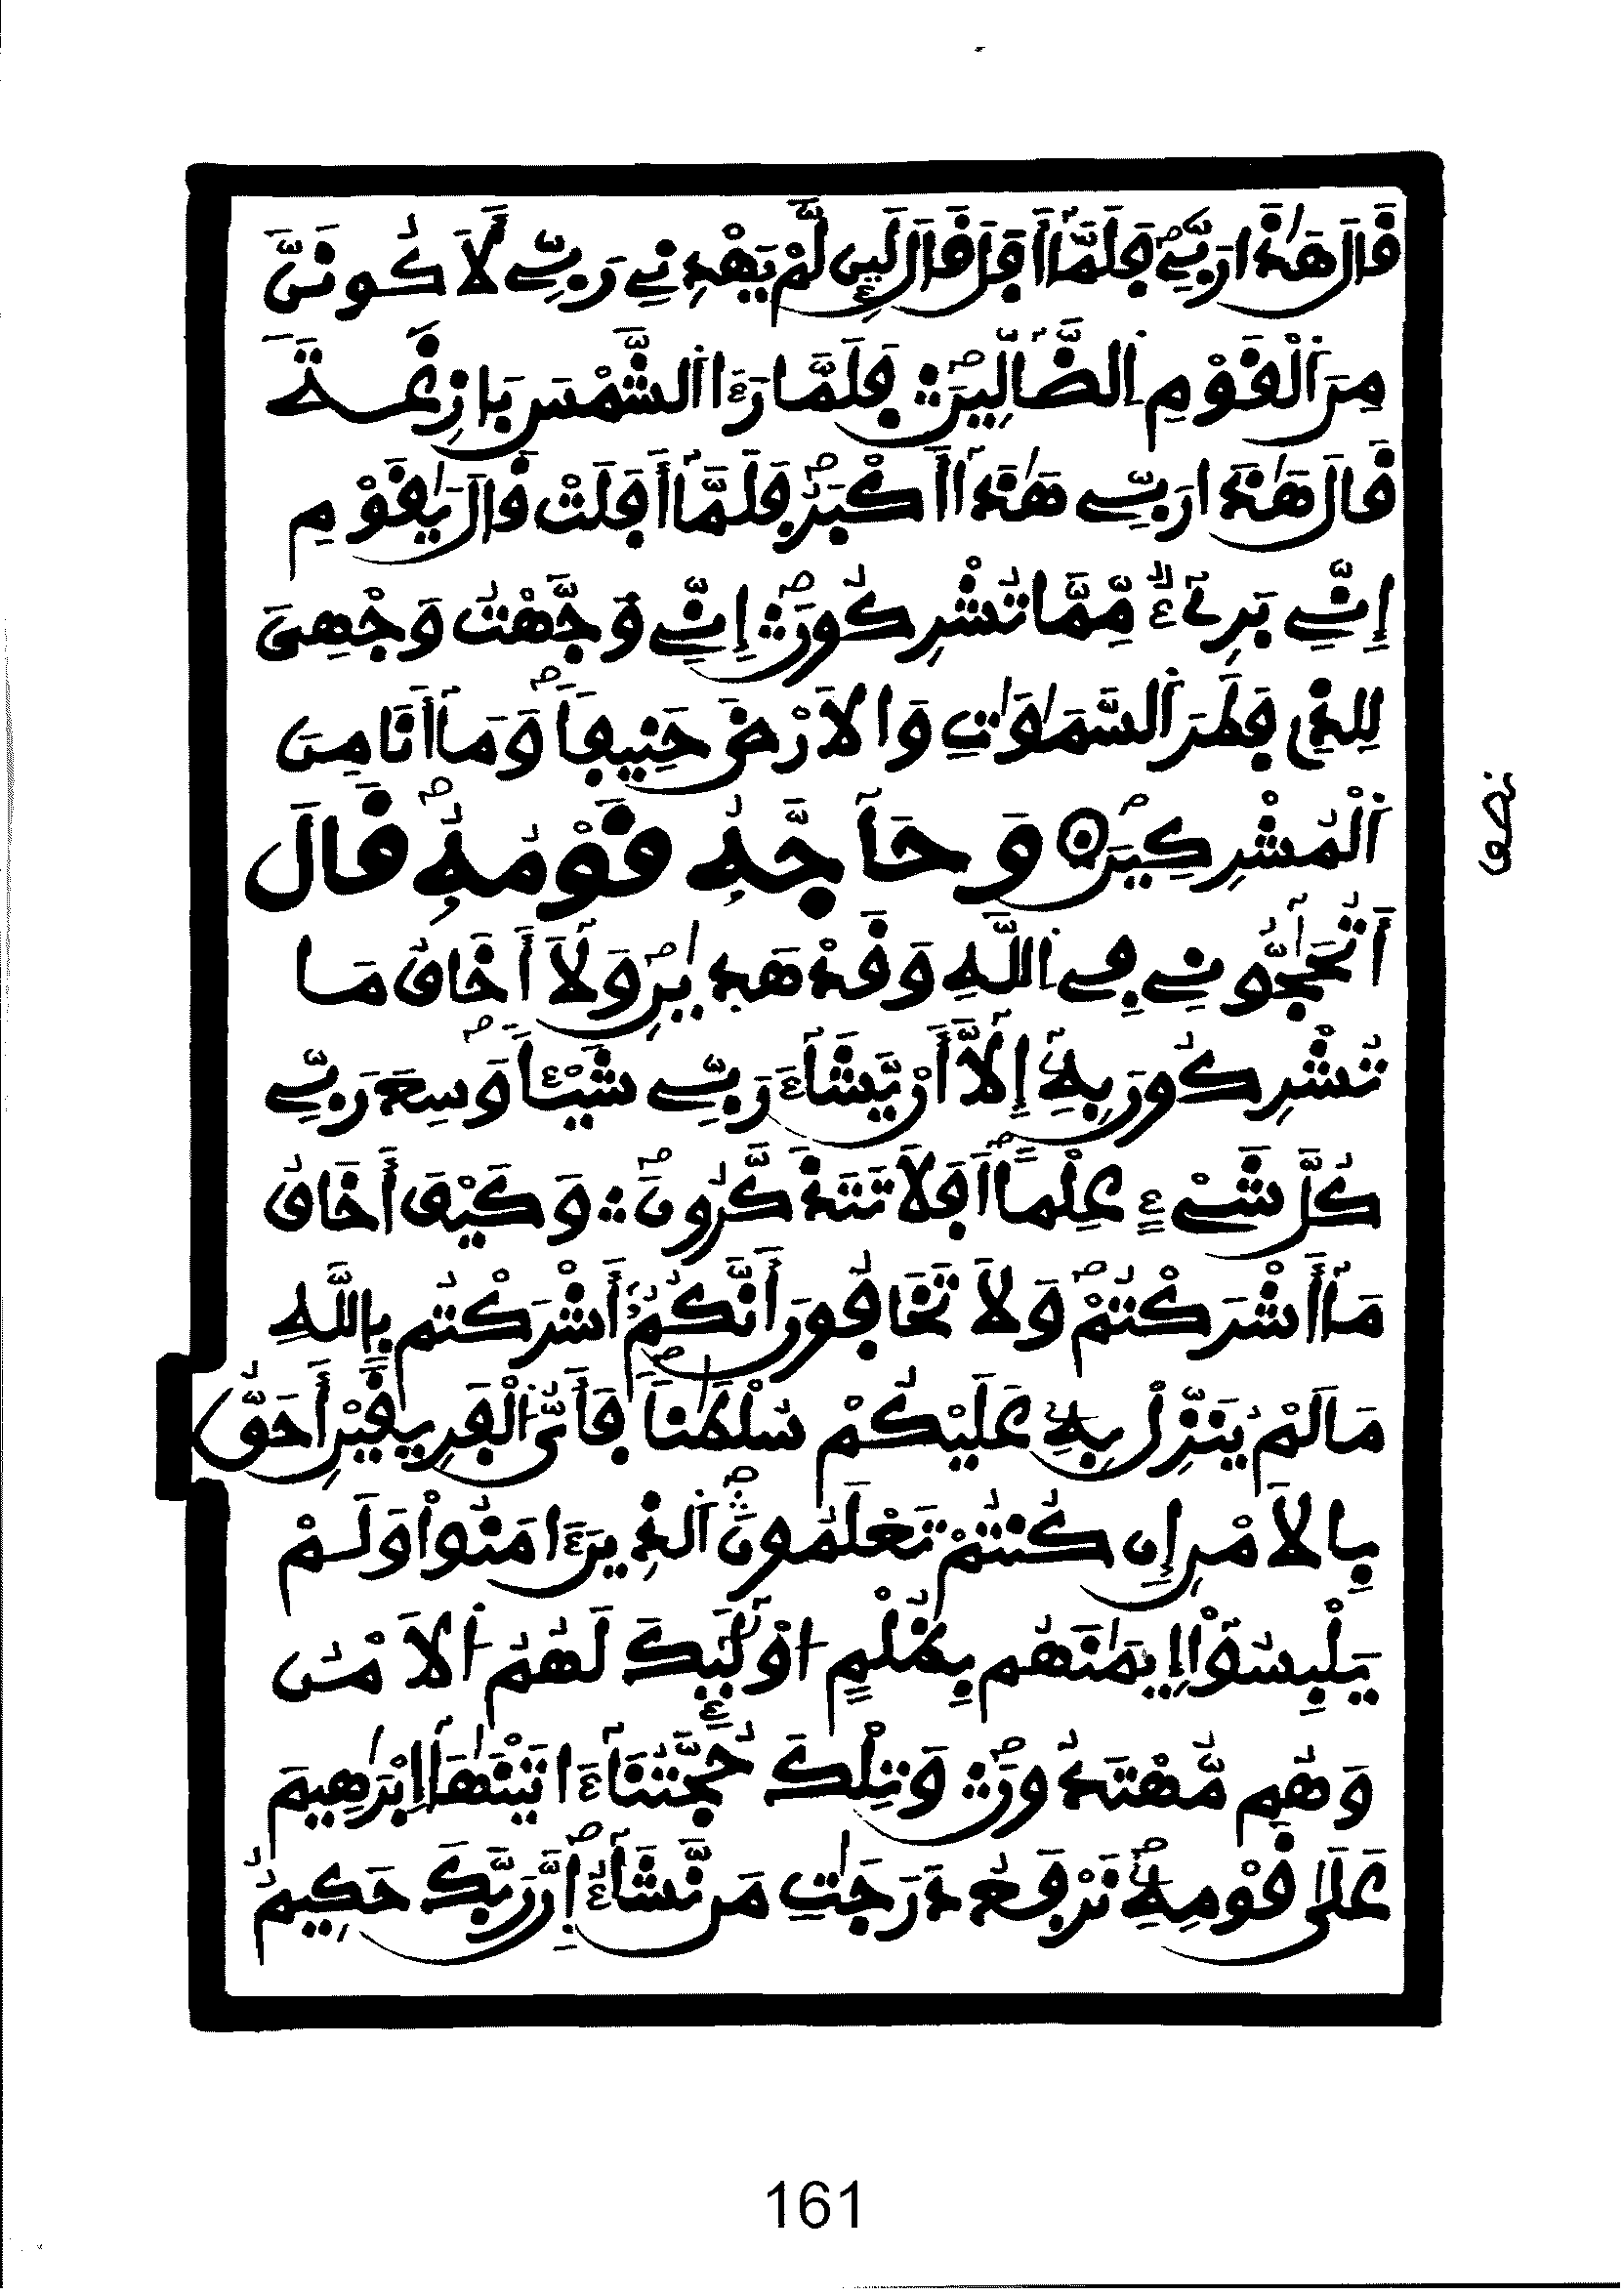 قَالَ هَٰذَا رَبِّے فَلَمَّآ أَفَلَ قَالَ لَئِن لَّمْ يَهْدِنِے رَبِّے لَأَكُونَنَّ
مِنَ اَ۬لْقَوْمِ اِ۬لضَّآلِّينَۖ فَلَمَّا رَءَا اَ۬لشَّمْسَ بَازِغَةٗ
قَالَ هَٰذَا رَبِّے هَٰذَآ أَكْبَرُۖ فَلَمَّآ أَفَلَتْ قَالَ يَٰقَوْمِ
إِنِّے بَرِےٓءٞ مِّمَّا تُشْرِكُونَۖ إِنِّے وَجَّهْتُ وَجْهِيَ
لِلذِے فَطَرَ اَ۬لسَّمَٰوَٰتِ وَالَارْضَ حَنِيفاٗۖ وَمَآ أَنَا مِنَ
اَ۬لْمُشْرِكِينَۖ وَحَآجَّهُۥ قَوْمُهُۥۖ قَالَ
أَتُحَٰٓجُّونِے فِے اِ۬للَّهِ وَقَدْ هَدَيٰنِۖ وَلَآ أَخَافُ مَا
تُشْرِكُونَ بِهِۦٓ إِلَّآ أَنْ يَّشَآءَ رَبِّے شَيْـٔاٗۖ وَسِعَ رَبِّے
كُلَّ شَےْءٍ عِلْماًۖ اَفَلَا تَتَذَكَّرُونَۖ وَكَيْفَ أَخَافُ
مَآ أَشْرَكْتُمْۖ وَلَا تَخَافُونَ أَنَّكُمُۥٓ أَشْرَكْتُم بِاللَّهِ
مَا لَمْ يُنَزِّلْ بِهِۦ عَلَيْكُمْ سُلْطَٰناٗۖ فَأَيُّ اُ۬لْفَرِيقَيْنِ أَحَقُّ
بِالَامْنِ إِن كُنتُمْ تَعْلَمُونَۖ اَ۬لذِينَ ءَامَنُواْ وَلَمْ
يَلْبِسُوٓاْ إِيمَٰنَهُم بِظُلْمٍ ا۟وْلَٰٓئِكَ لَهُمُ اُ۬لَامْنُ
وَهُم مُّهْتَدُونَۖ وَتِلْكَ حُجَّتُنَآ ءَاتَيْنَٰهَآ إِبْرَٰهِيمَ
عَلَىٰ قَوْمِهِۦۖ نَرْفَعُ دَرَجَٰتِ مَن نَّشَآءُۖ اِنَّ رَبَّكَ حَكِيمٌ
نصف
161